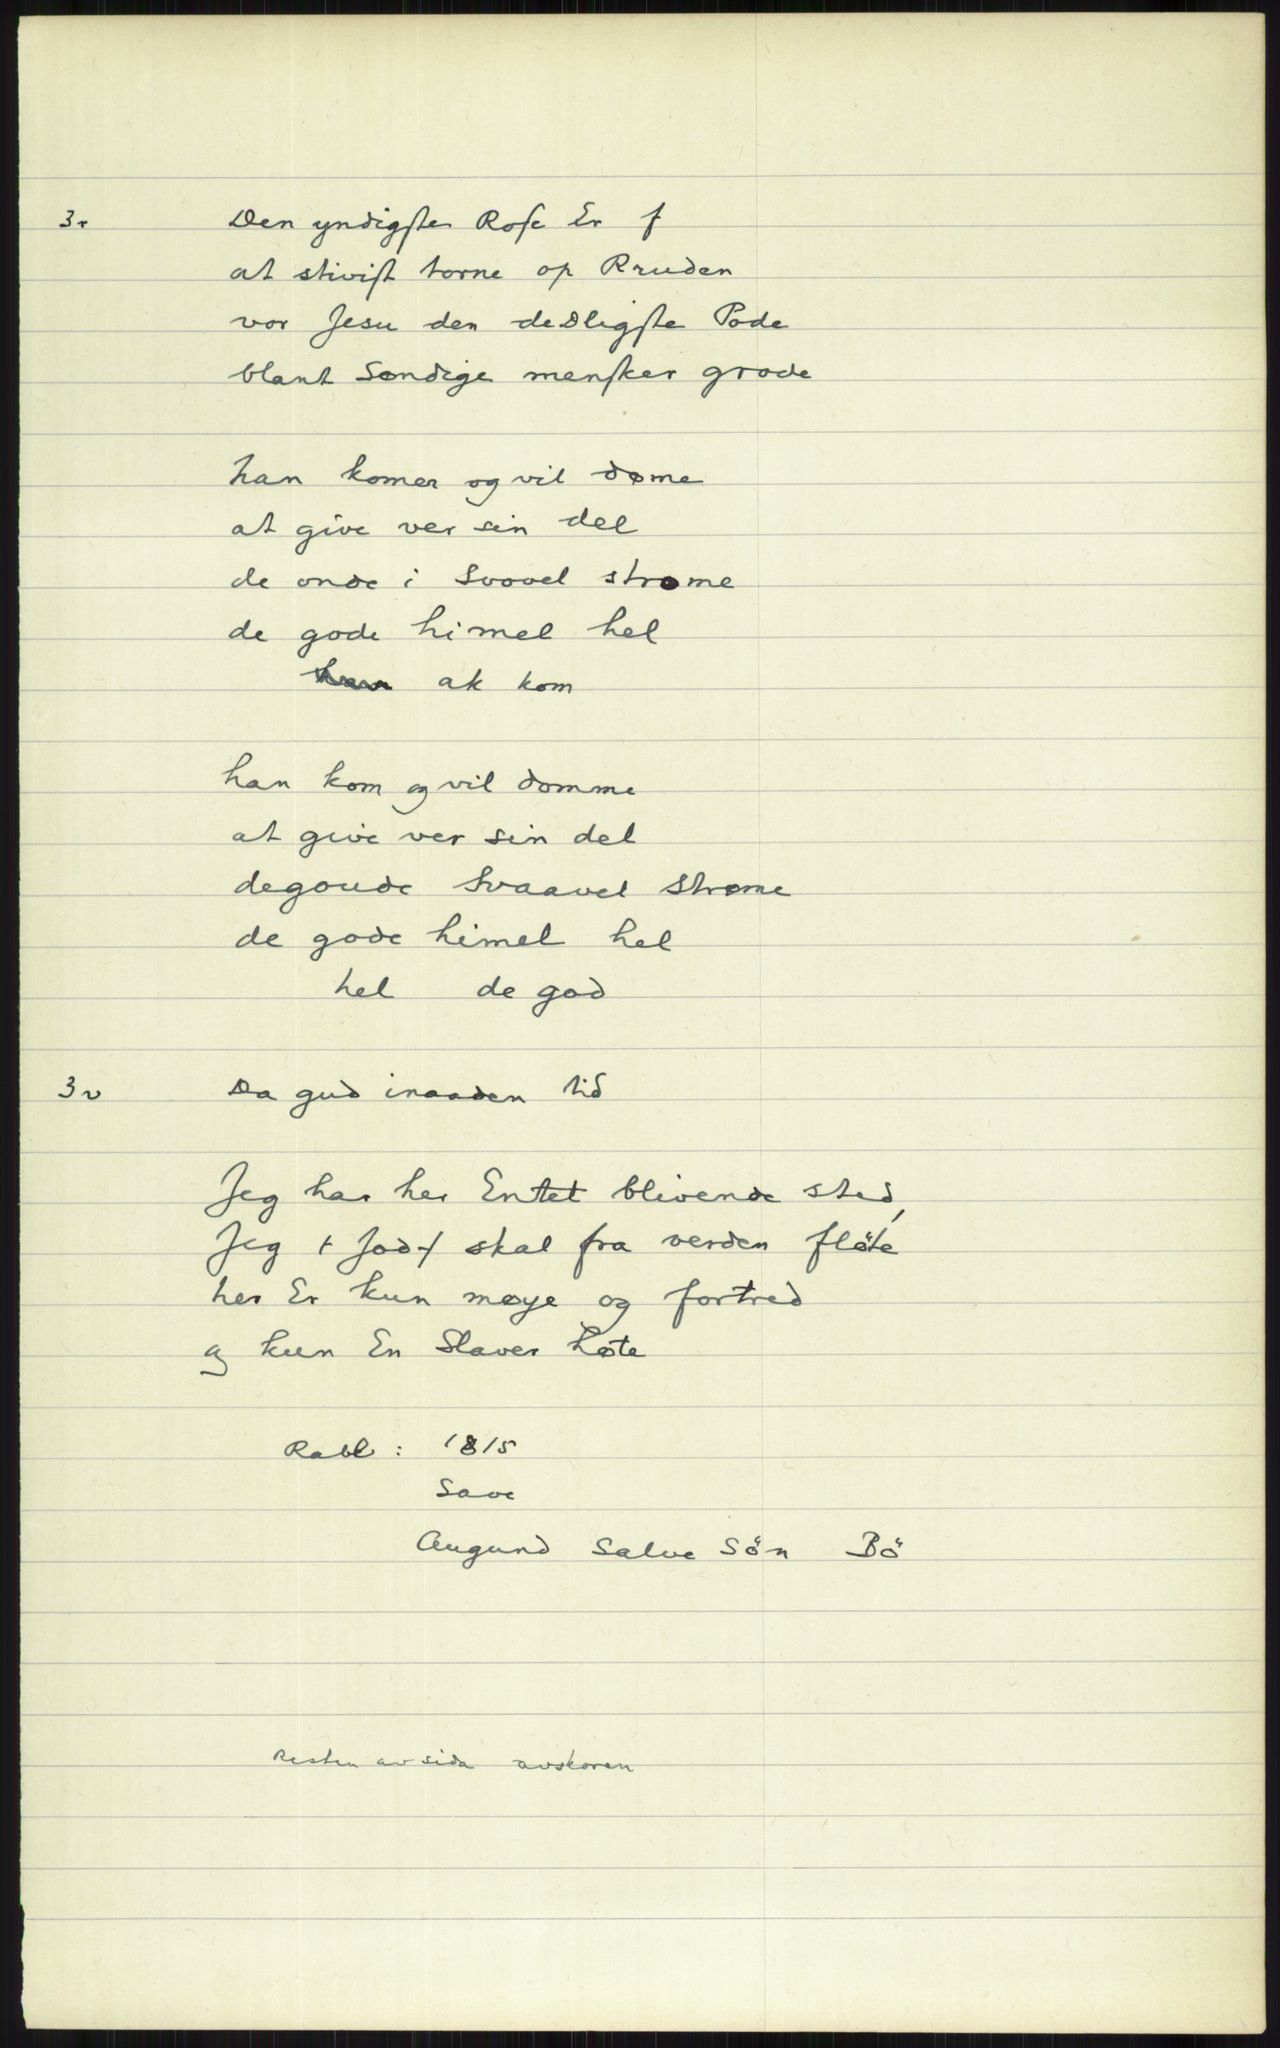 3r Den yndigste Rose Er f
at stivist torne op Rruden
vor Jesu den deDligste Pode
blant Søndige mensker grode
han komer og vil døme
at give ver sin del
de onde i Svovel strøme
de gode himel hel
ak kom
han kom og vil domme
at give ver sin del
degoude Svaavel Strøme
de gode himel hel
hel de god
3v Da gud inaaden tid
Jeg har her Entet blivende sted,
Jeg + Jod + skal fra verden fløte
her Er kun møye og fortred
og kun En Slaver høte
Rabl : 1815
Save
Augund Salve Sön Bö
Resten av sida avskoren